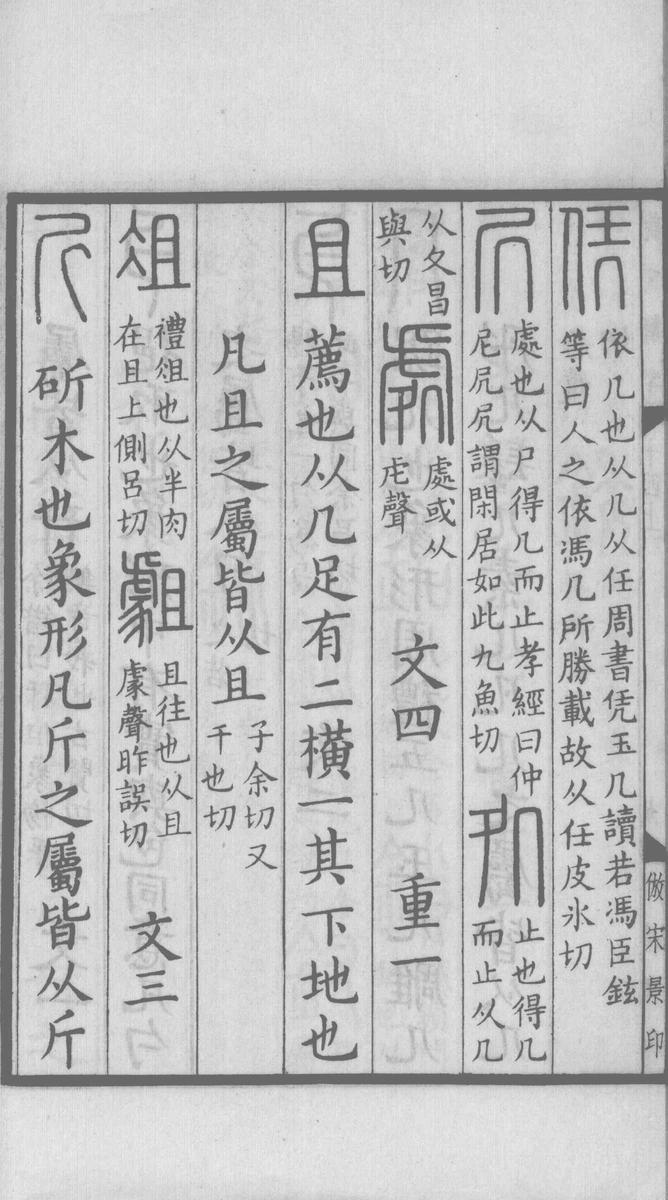 凭 依几也从几从任周書凭玉几讀若馮臣鉉
等曰人之依馮几所勝載故从任皮氷切
凥 處也从尸得几而止孝經曰仲
尼凥凥謂閑居如此九魚切
処 止也得几
而止从几
从夊昌
與切
處 處或从
虍聲
文四 重一
且 薦也从几足有二橫一其下地也
凡且之屬皆从且 子余切又
千也切
俎 禮俎也从半肉
在且上側呂切
䖕 且往也从且
䖒聲昨誤切
文三
斤 斫木也象形凡斤之屬皆从斤
倣宋景印